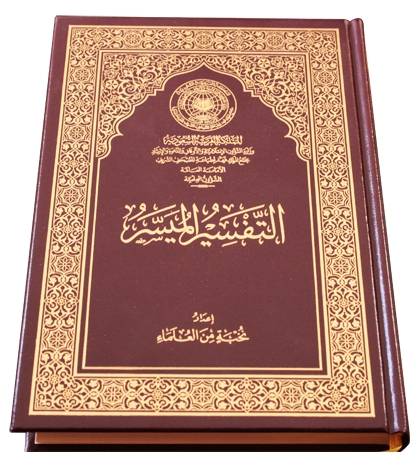 المملكة العربية السعودية
وزارة الشؤون الإسلامية والأوقاف والدعوة والإرشاد
مجمع الملك فهد لطباعة المصحف الشريف
الأمانة العامة
الشؤون العلمية
التَّفْسِيرُ المُيَسَّرُ
إعداد
نُخْبَةٌ مِنَ العُلَمَاءِ